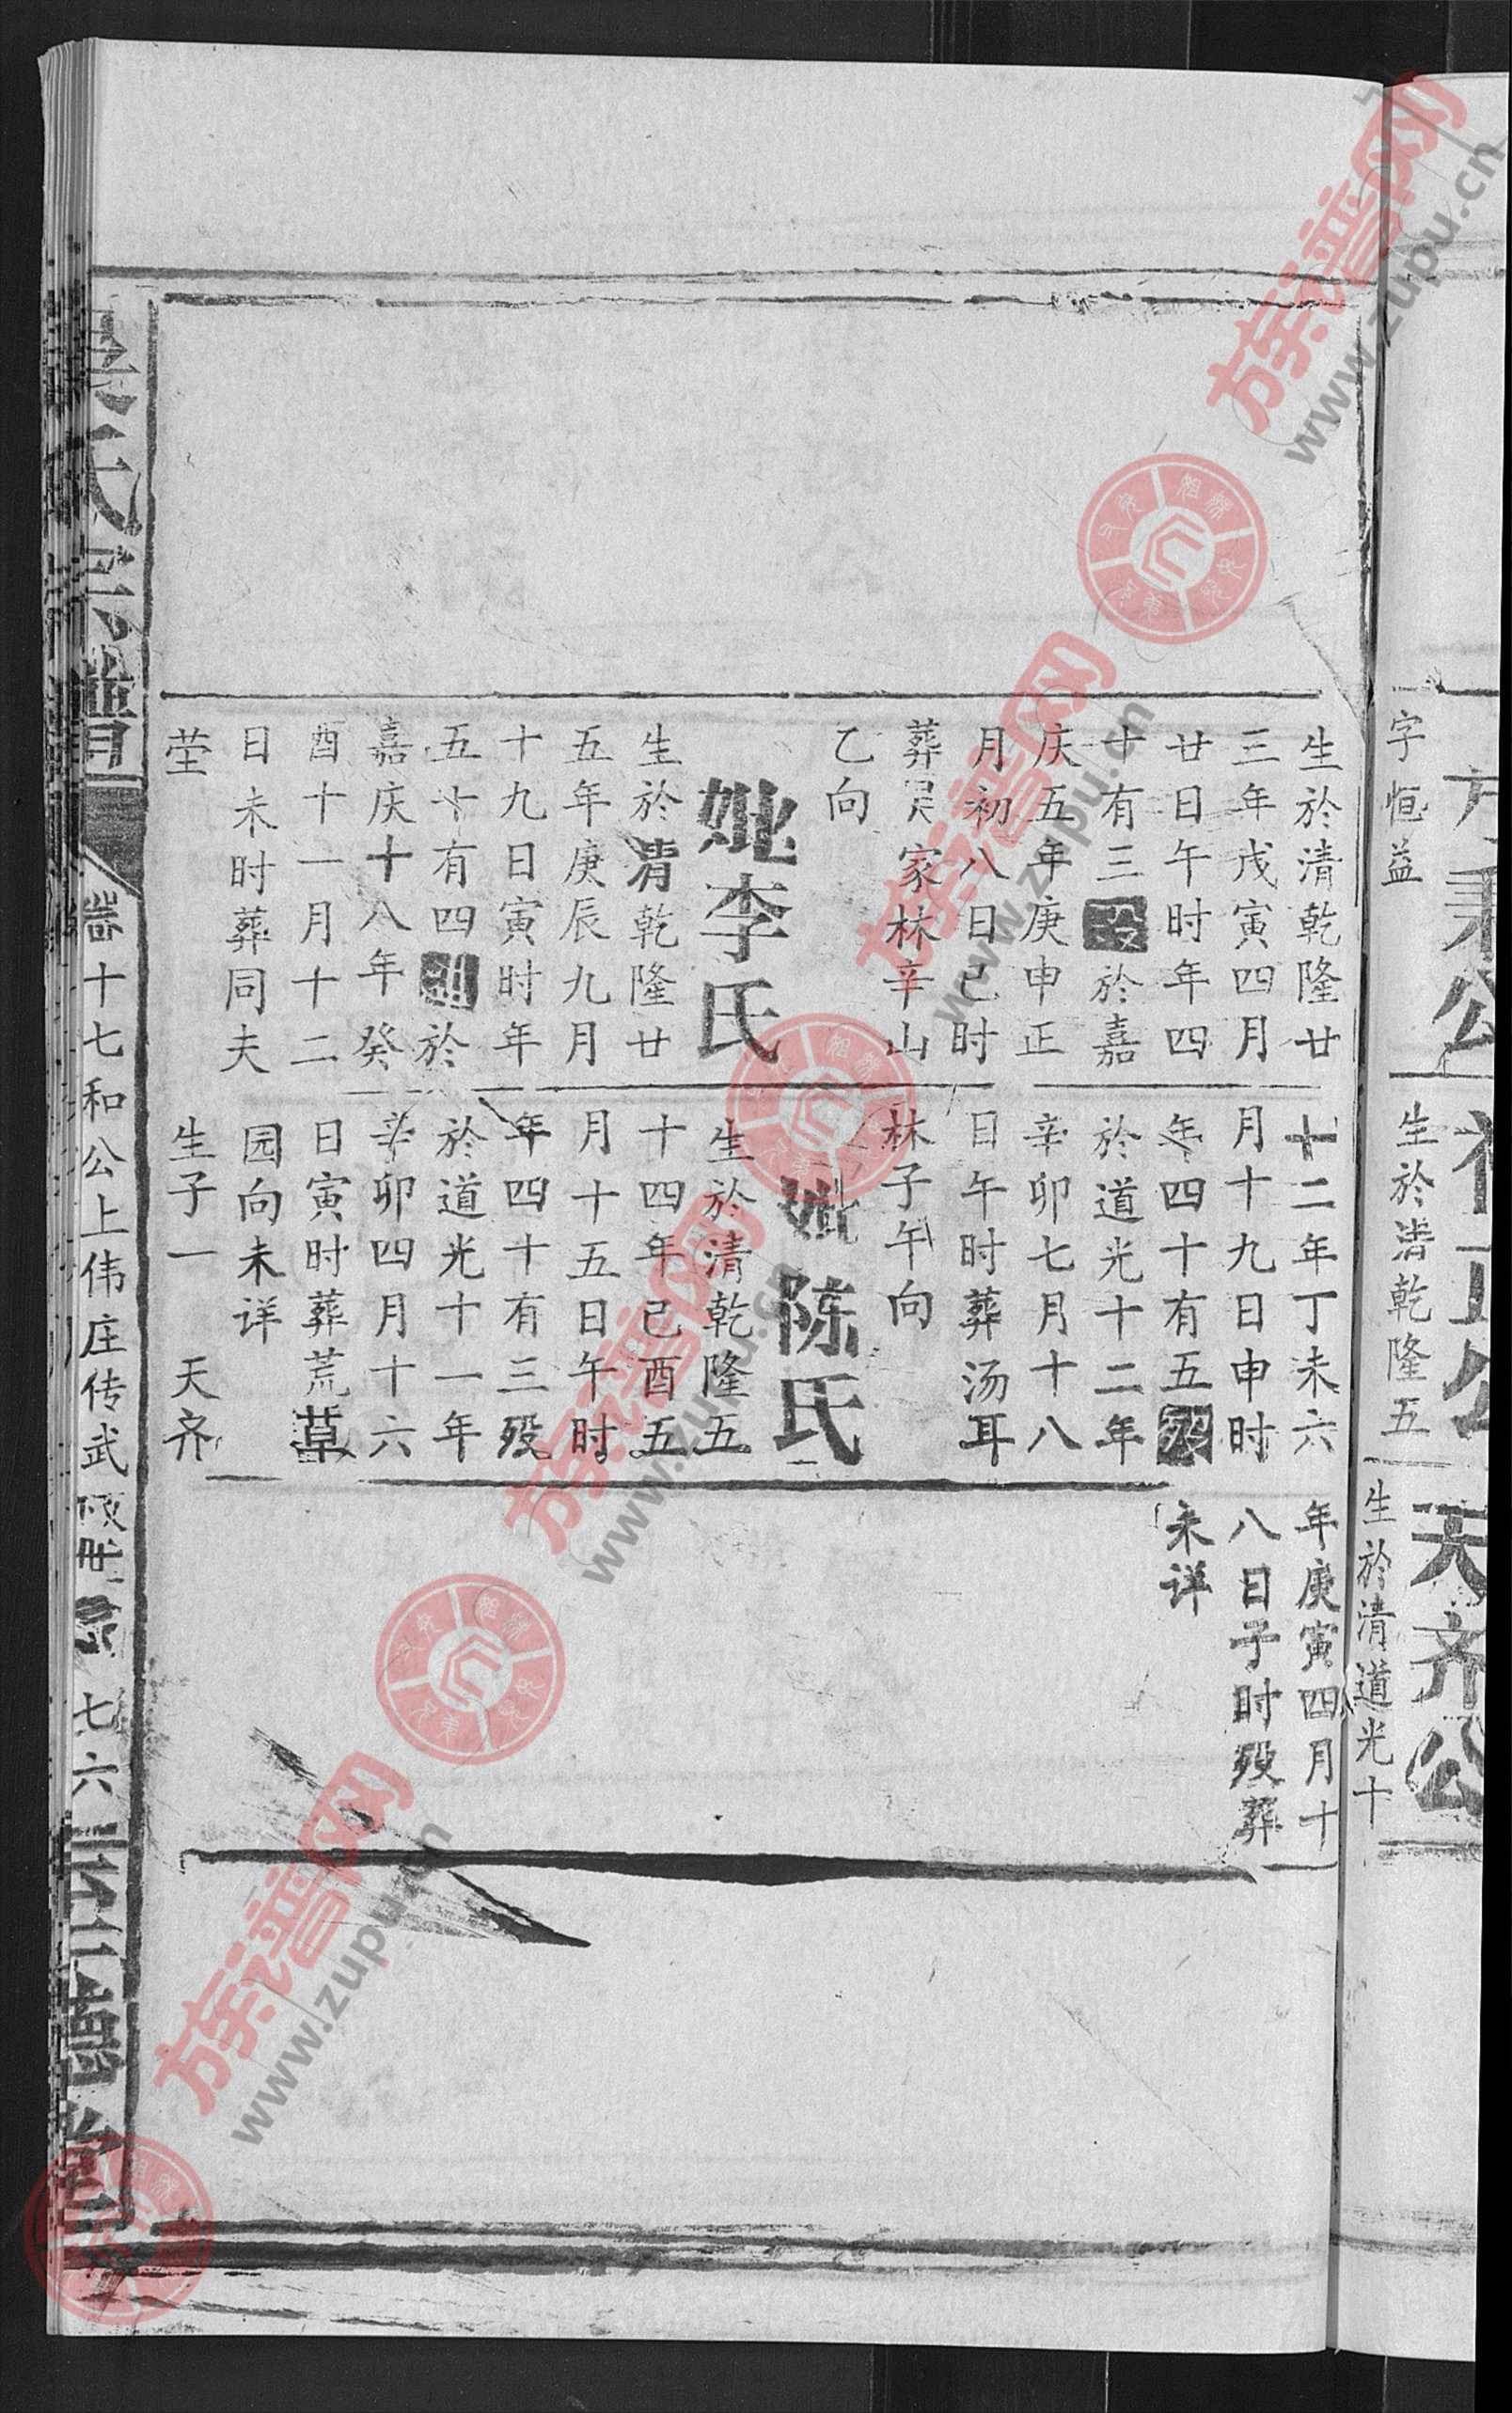 字恒益
秉公
生於清乾隆廿
三年戊寅四月
廿日午时年四
十有三殁於嘉
庆五年庚申正
月初八日己时
葬吴家林辛山
乙向
妣李氏
生於清乾隆廿
五年庚辰九月
十九日寅时年
五十有四殁於
嘉庆十八年癸
酉十一月十二
日未时葬同夫
茔
公
生於清乾隆五
十二年丁未六
月十九日申时
年四十有五殁
於道光十二年
辛卯七月十八
日午时葬汤耳
林子午向
妣陈氏
生於清乾隆五
十四年己酉五
月十五日午时
年四十有三殁
於道光十一年
辛卯四月十六
日寅时葬荒草
园向未详
生子一 天齐
天齐公
生於清道光十
年庚寅四月十
八日子时殁葬
未详
氏宗譜
卷十七和公上伟庄传武
七六
德堂
族谱网
www.zupu.cn
族谱网
www.zupu.cn
族谱网
www.zupu.cn
族谱网
www.zupu.cn